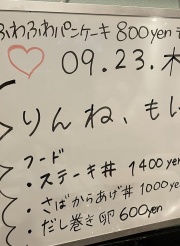 ふわふわパンケーキ 800yen
09.23.木
りんね、もい
フード
・ステーキ丼 1400yen
・さばからあげ丼 1000yen
・だし巻き卵 600yen